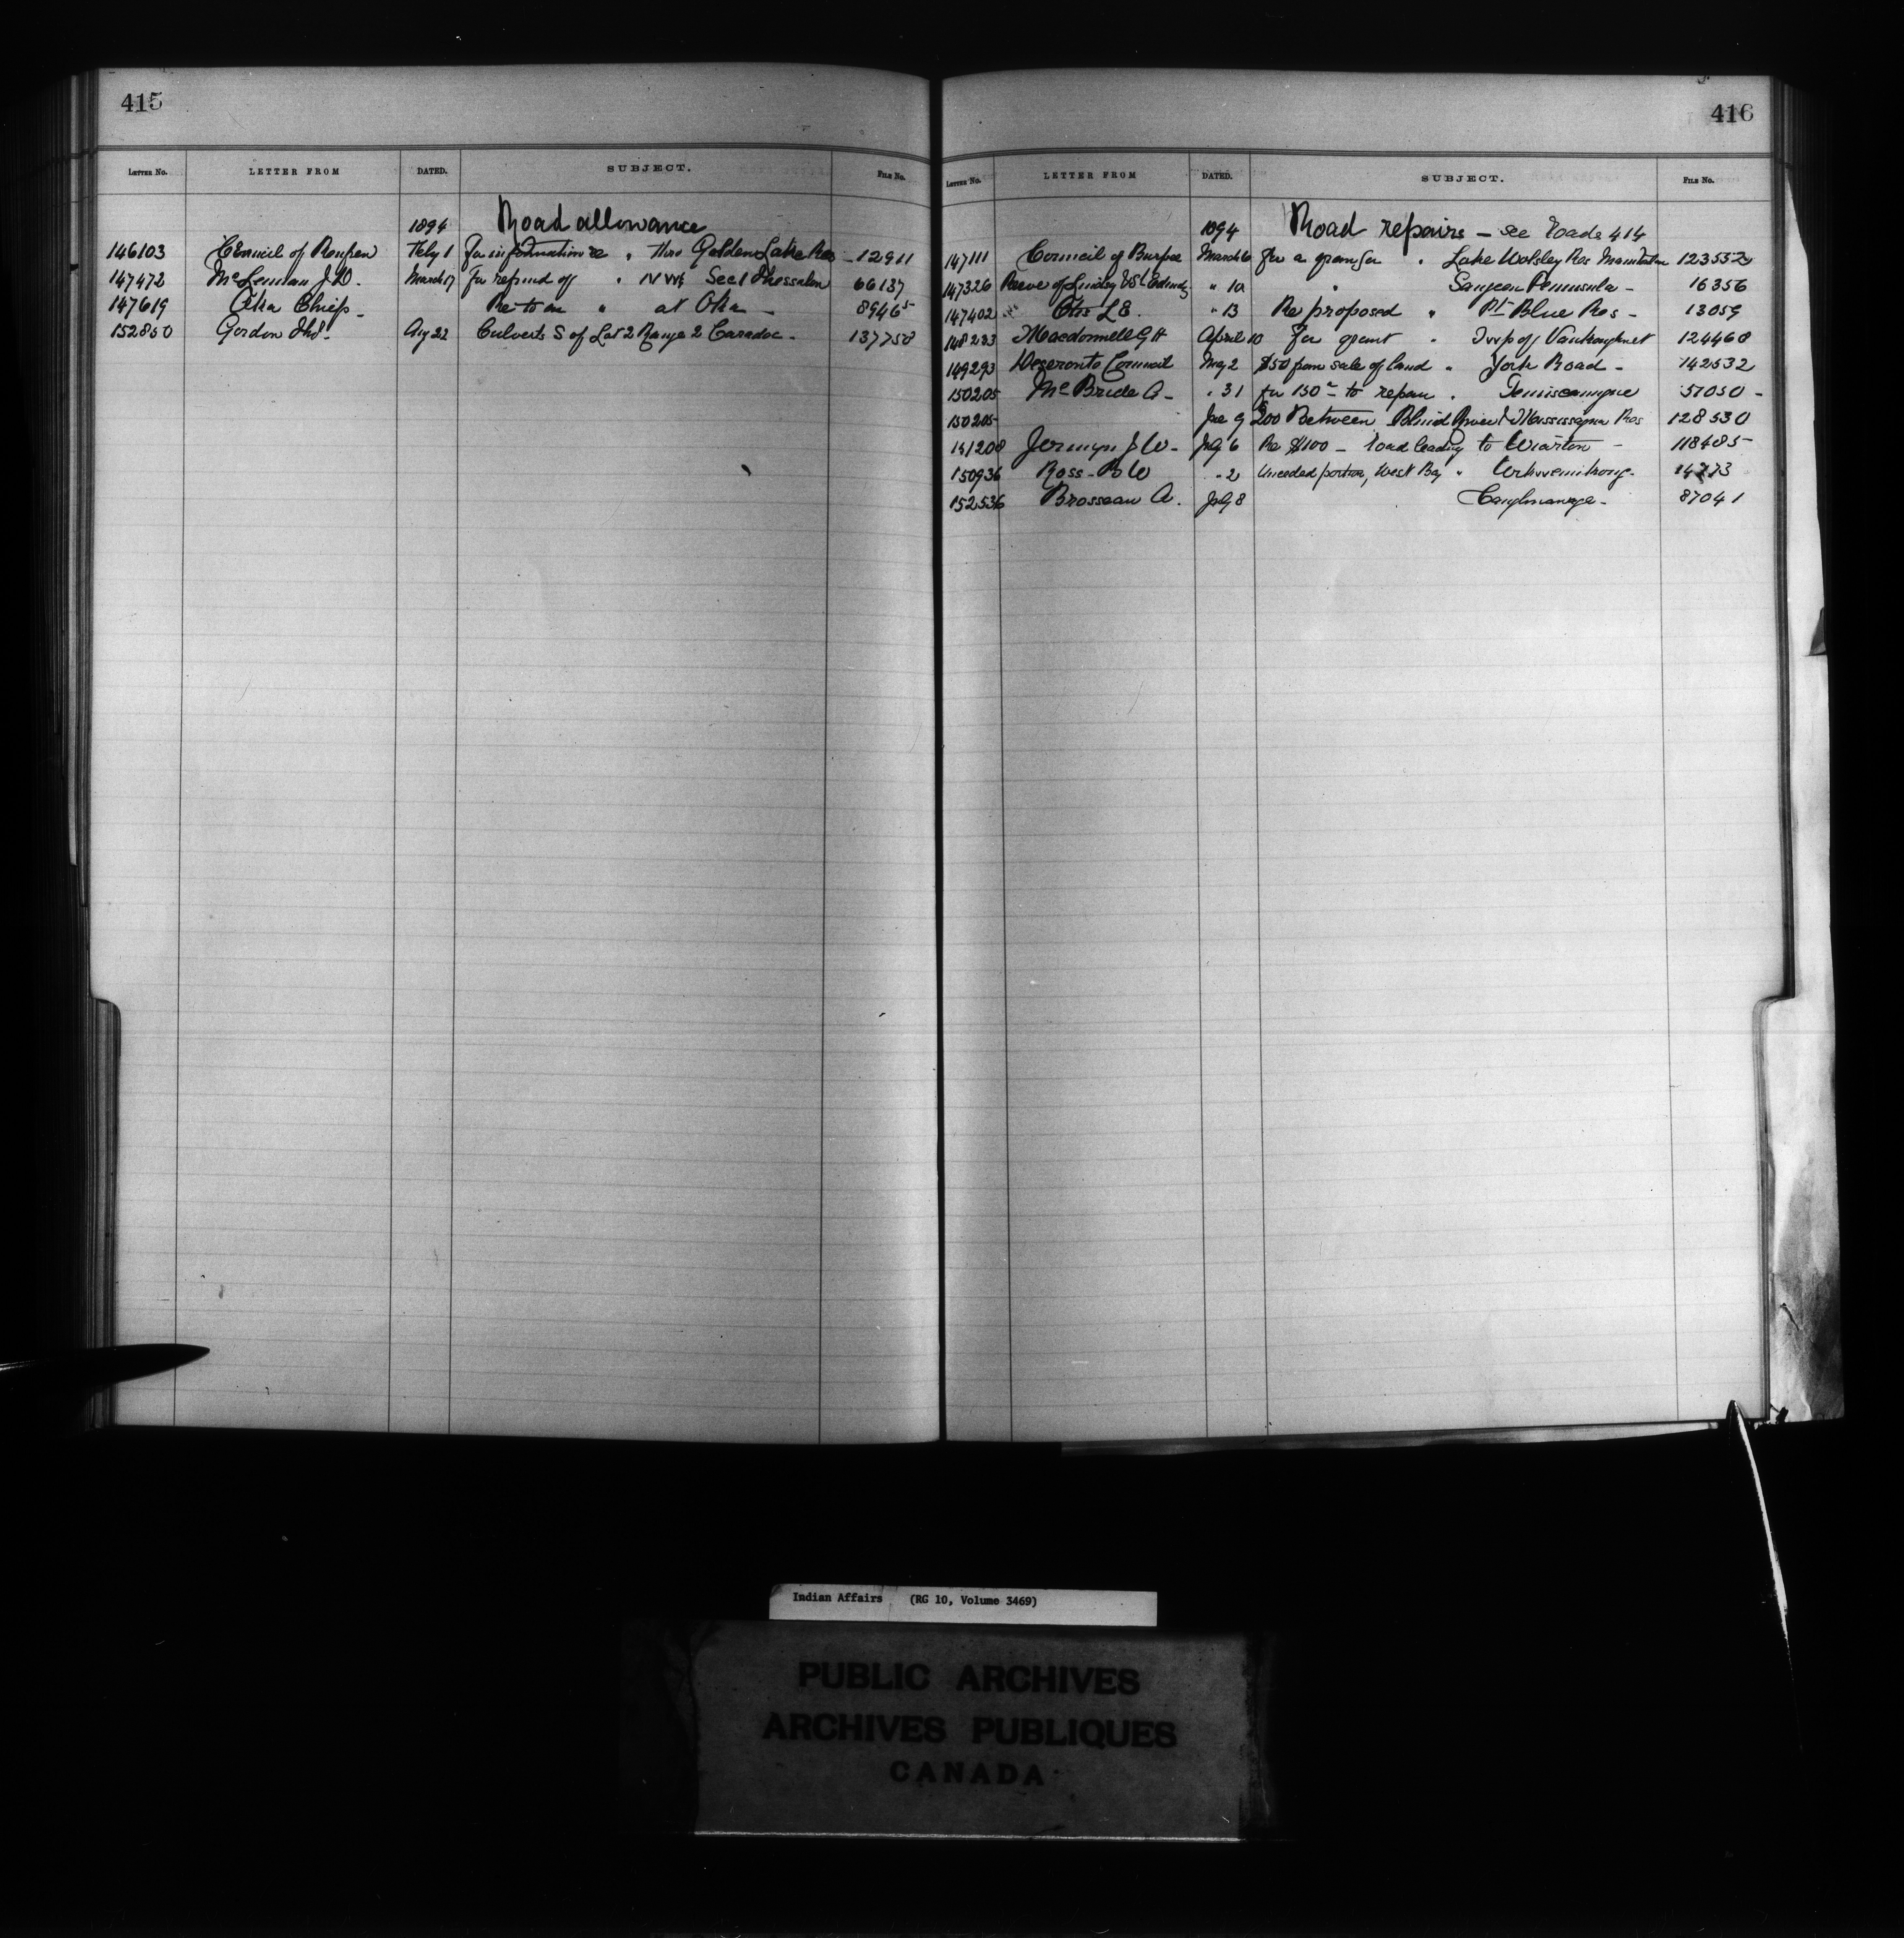 415
LETTER No. LETTER FROM DATED. SUBJECT. FILE No.
1894 Road allowance
146103 Council of Feby 1 For information re " thro Golden Lake Res - 12911
147472 McLennan J.D. March 17 For refund of " NW¼ Sec 1 Thessalon 66137
147619 Oka Chiefs - Re to an " at Oka - 89465
152850 Gordon Aug 22 Culverts S of Lot 2 Range 2 Caradoc - 137758
416
LETTER No. LETTER FROM DATED. SUBJECT. FILE No.
1894 Road repairs - see Roads 414
147111 Council of Burpee March 6 For a grant for " Lake Wolsley Res Manitoulin 123552
147326 Reeve of Lindsay & St Edmunds " 10 " Saugeen Peninsula - 16356
147402 L E. " 13 Re proposed " Pt Blue Res - 13059
148233 Macdonnell G H April 10 For grant " Twp of Vankoughnet 124460
149293 Deseronto Council May 2 $50 from sale of land " York Road - 142532
150205 McBride A - " 31 for 150 - to repair " Temiscamingue 57050 -
150205 June 9 200 Between Blind River & Mississagua Res 128530
151200 Jermyn J W - July 6 Re $100 - road leading to Wiarton - 118485
150936 Ross - B W " 2 Unceded portion, West Bay " Wikwemikong - 14273
152536 Brosseau A. July 8 Caughnawaga - 87041
Indian Affairs (RG 10, Volume 3469)
PUBLIC ARCHIVES
ARCHIVES PUBLIQUES
CANADA